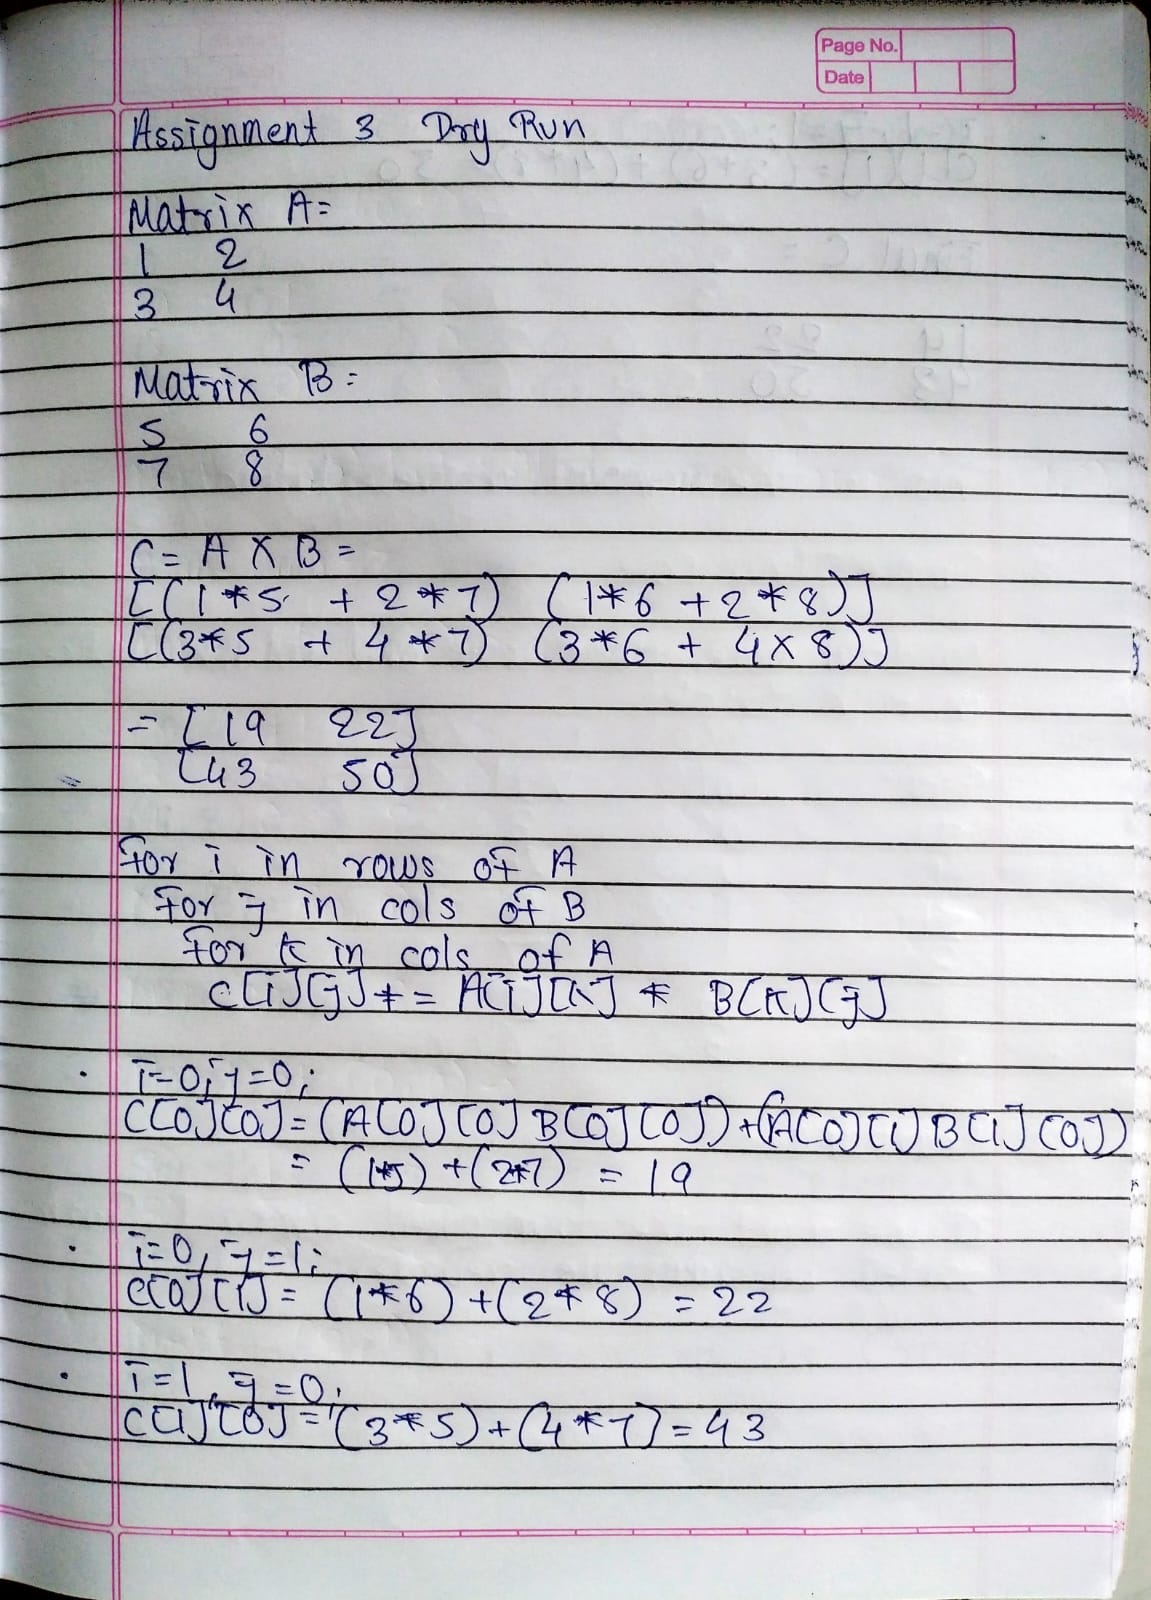 Page No.
Date
Assignment 3 Dry Run
Matrix A=
1 2
3 4
Matrix B=
5 6
7 8
C= A X B =
[(1*5 + 2*7) (1*6 +2*8)]
[(3*5 + 4*7) (3*6 + 4x8)]
= [19 22]
[43 50]
for i in rows of A
for j in cols of B
for k in cols of A
C[i][j]+= A[i][k] * B[k][j]
• i=0, j=0;
C[0][0]=(A[0][0]B[0][0])+(A[0][1]B[1][0])
= (1*5)+(2*7) = 19
• i=0, j=1;
C[0][1]= (1*6)+(2*8) = 22
• i=1, j=0;
C[1][0]=(3*5)+(4*7)=43